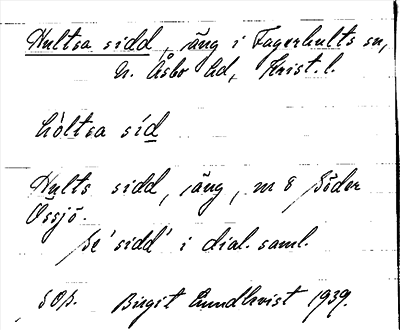 Hultsa sidd, äng i Fagerhults sn,
N. Åsbo hd, Krist. l.
hòltsa síd
Hults sidd, äng, n ö Söder
Össjö.
Se 'sidd' i dial. saml.
sop. Birgit Lundkvist 1939.